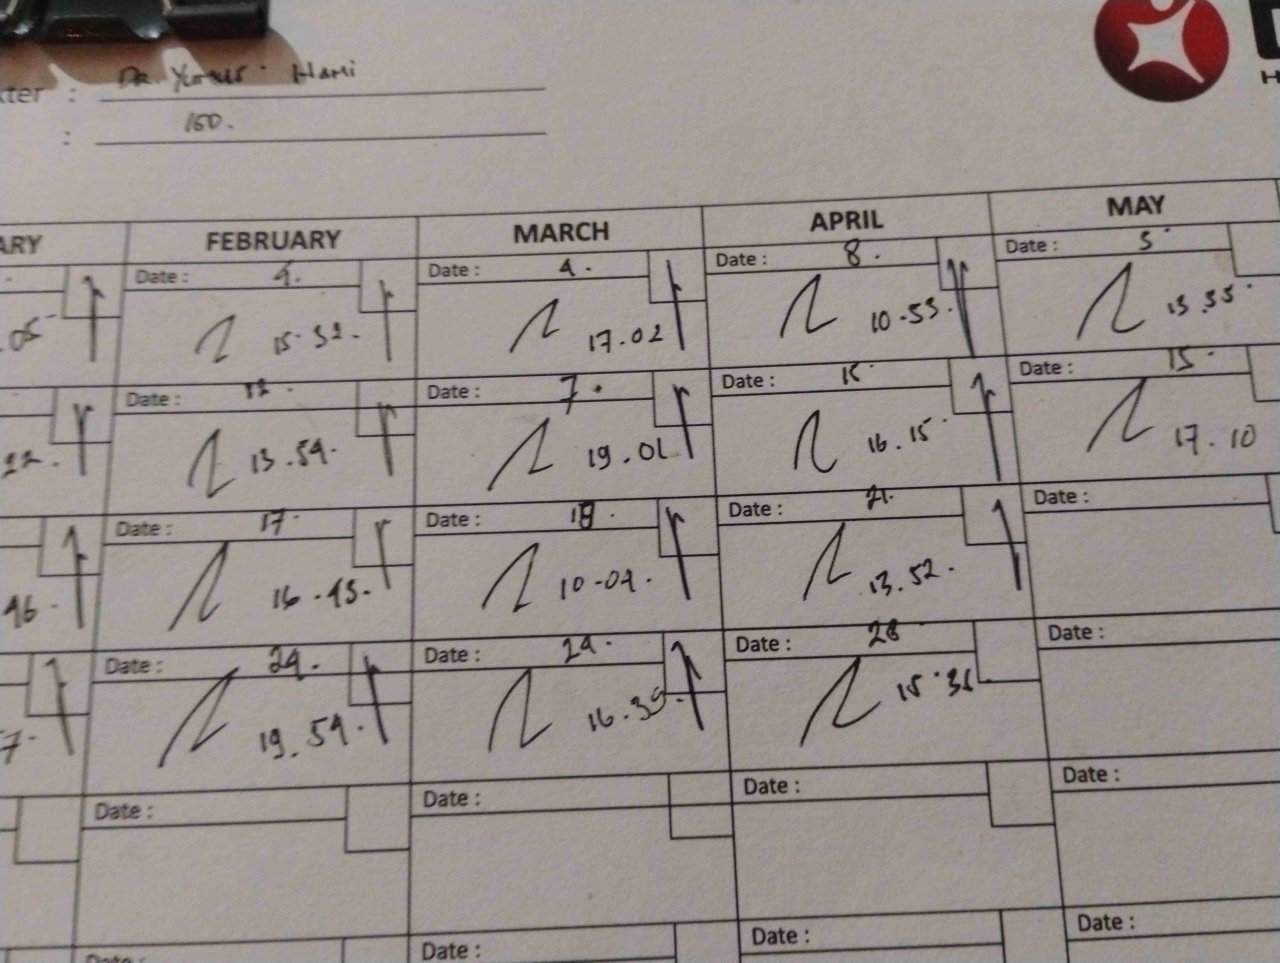 kter : Dr. Yunus Hani
: 160.
H
ARY FEBRUARY MARCH APRIL MAY
Date : 4. Date : 4. Date : 8. Date : 5.
.05 15.32. 17.02 10.53. 13.35.
Date : 12. Date : 7. Date : 15 Date : 15.
22. 13.54. 19.01 16.15 17.10
Date : 17. Date : 18. Date : 21. Date :
46. 16.45. 10.04. 13.52.
Date : 24. Date : 24. Date : 28 Date :
7. 19.54. 16.39. 15.36
Date : Date : Date : Date :
Date : Date : Date : Date :